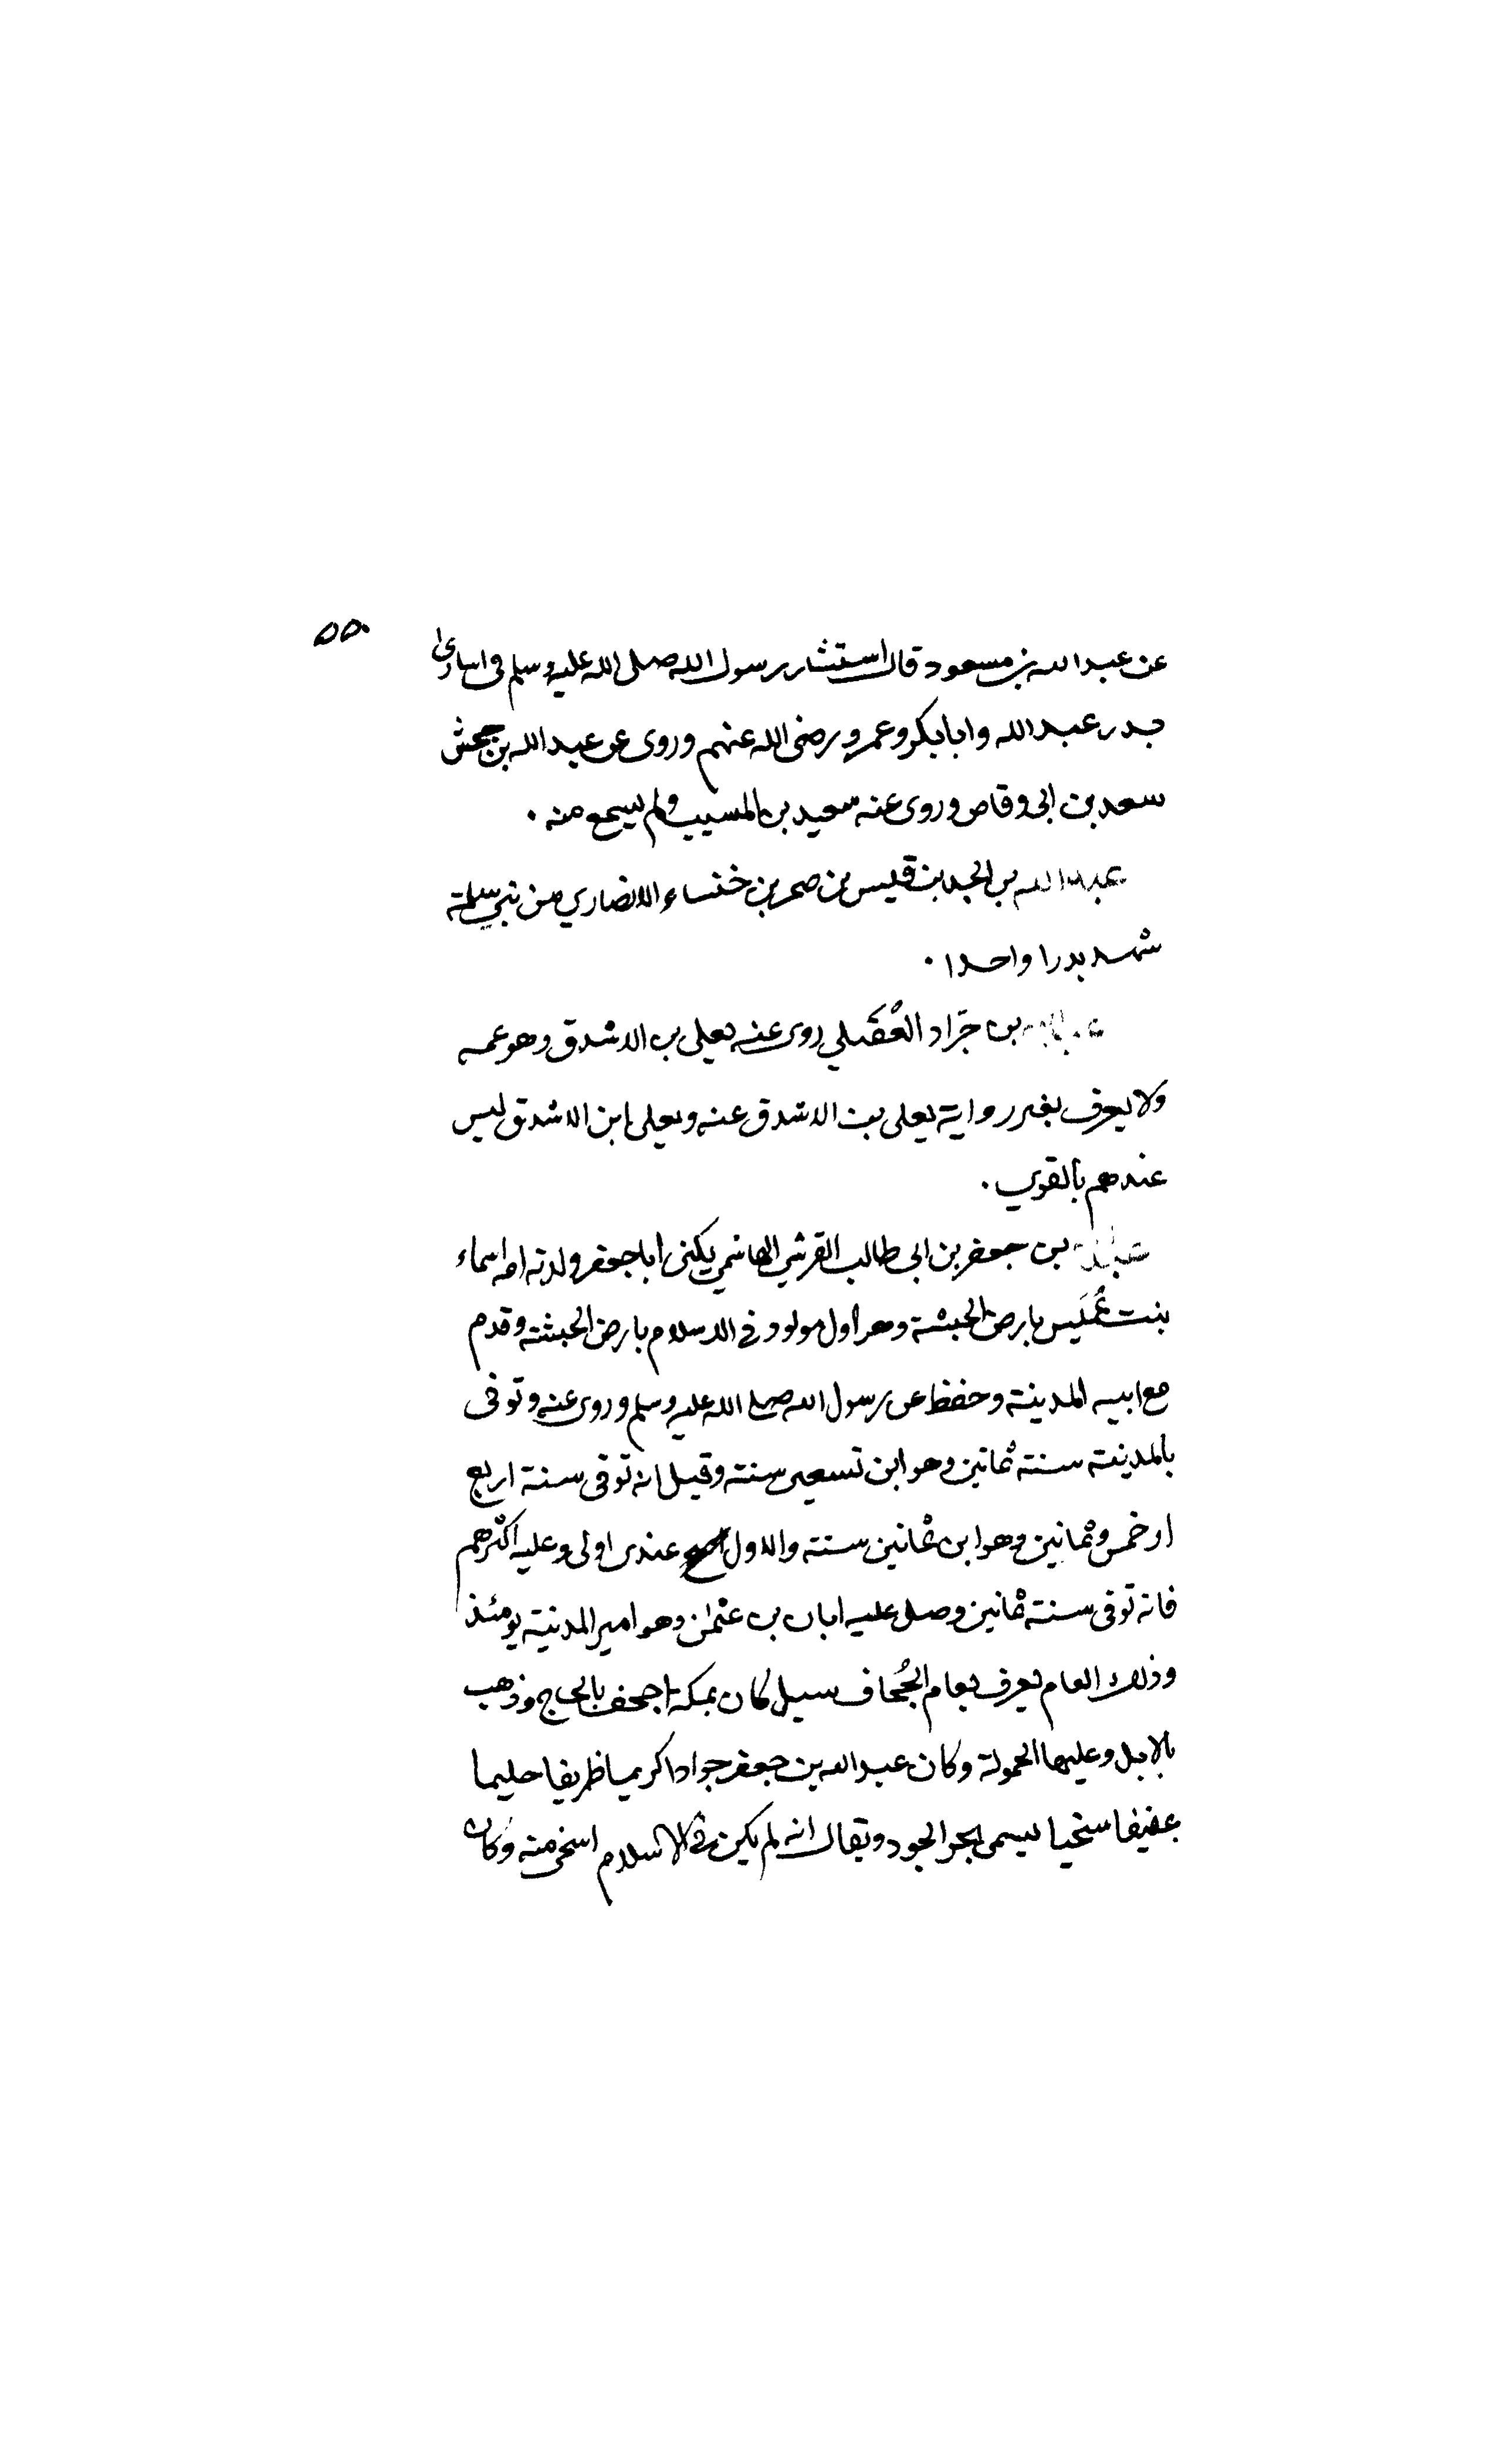 ٥٥٠
عن عبد الله بن مسعود قال استشار رسول الله صلى الله عليه وسلم في اسارىٰ
بدر عبد الله وابا بكر وعمر ورضى الله عنهم وروى عن عبد الله بن جحش
سعد بن ابى وقاص وروى عنه سعيد بن المسيب ولم يسمع منه .
عبد الله بن الجد بن قيس بن صخر بن خنساء الانصاري من بني سلمة
شهد بدرا واحدا .
بن جَراد العُقَيلي روى عنه يعلى بن الاشدق وهو عمه
ولا يعرف بغير رواية يعلى بن الاشدق عنه ويعلى ابن الاشدق ليس
عندهم بالقوي .
عبد الله بن جعفر بن ابى طالب القرشي الهاشمي يكنى ابا جعفر ولدته امه اسماء
بنت عُمَيس بارض الحبشة وهو اول مولود في الاسلام بارض الحبشة وقدم
مع ابيه المدينة وحفظ عن رسول الله صلى الله عليه وسلم وروى عنه وتوفى
بالمدينة سنة ثمانين وهو ابن تسعين سنة وقيل انه توفى سنة اربع
او خمس وثمانين وهو ابن ثمانين سنة والاول عندى اولى وعليه اكثرهم
فانه توفى سنة ثمانين وصلى عليه ابان بن عثمٰن وهو امير المدينة يومئذ
وذلك العام يعرف بعام الجُحاف سيل كان بمكة اجحف بالحاج وذهب
بالابل وعليها الحمولة وكان عبد الله بن جعفر جوادا كريما ظريفا حليما
عفيفا سخيا يسمى بحر الجود ويقال انه لم يكن في الاسلام اسخى منه وكان